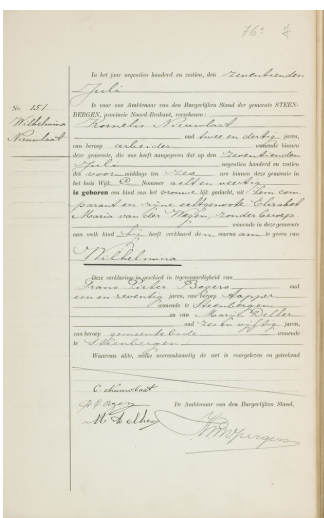 76:
In het jaar negentien honderd en zestien, den zeventienden
Juli
verscheen voor ons Ambtenaar van den Burgerlijken Stand der gemeente STEEN-
BERGEN, provincie Noord-Brabant,
No. 151
Wilhelmina
Nieuwlaat
Kornelis Nieuwlaat
oud twee en dertig jaren,
van beroep arbeider wonende binnen
deze gemeente, die ons heeft aangegeven dat op den zeventienden
Juli negentien honderd en zestien
des voormiddags ten zes ure binnen deze gemeente in
het huis Wijk C Nommer acht en veertig
is geboren een kind van het vrouwelijk geslacht, uit hem com
parant en zijne echtgenoote Elizabet
Maria van der Weijen, zonder beroep
wonende in deze gemeente
aan welk kind hij heeft verklaard den naam te geven van
Wilhelmina
Deze verklaring is geschied in tegenwoordigheid van
Frans Pieter Bogers oud
een en zeventig jaren, van beroep tapper
wonende te Steenbergen
en van Marijn Delhez
oud zes en vijftig jaren,
van beroep gemeentebode wonende
te Steenbergen
Waarvan akte, welke overeenkomstig de wet is voorgelezen en geteekend
C. Nieuwlaat
De Ambtenaar van den Burgerlijken Stand,